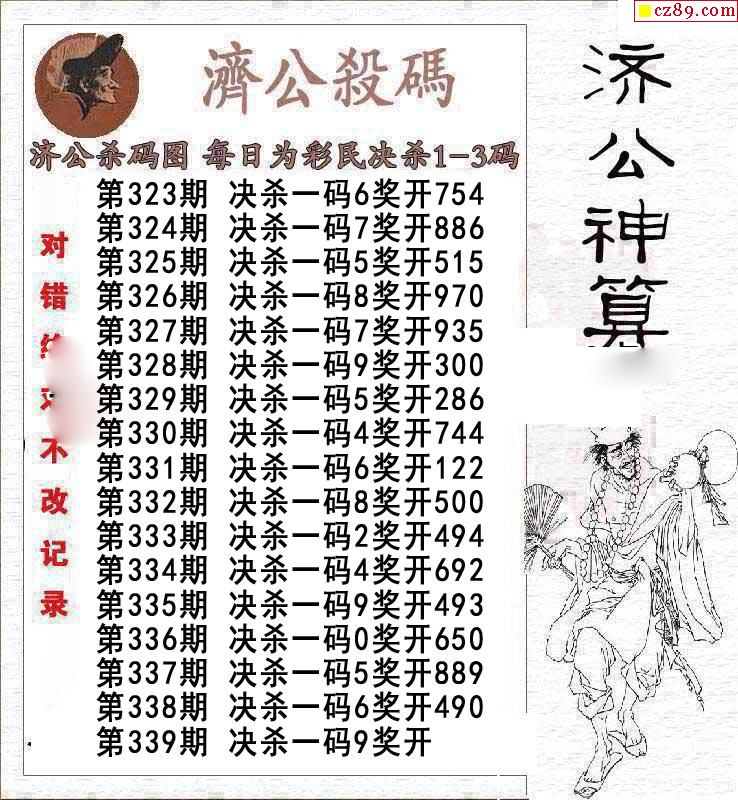 cz89.com
濟公殺碼
济公杀码图 每日为彩民决杀1-3码
第323期 决杀一码6奖开754
第324期 决杀一码7奖开886
第325期 决杀一码5奖开515
第326期 决杀一码8奖开970
第327期 决杀一码7奖开935
第328期 决杀一码9奖开300
第329期 决杀一码5奖开286
第330期 决杀一码4奖开744
第331期 决杀一码6奖开122
第332期 决杀一码8奖开500
第333期 决杀一码2奖开494
第334期 决杀一码4奖开692
第335期 决杀一码9奖开493
第336期 决杀一码0奖开650
第337期 决杀一码5奖开889
第338期 决杀一码6奖开490
第339期 决杀一码9奖开
对错
不改记录
济公神算